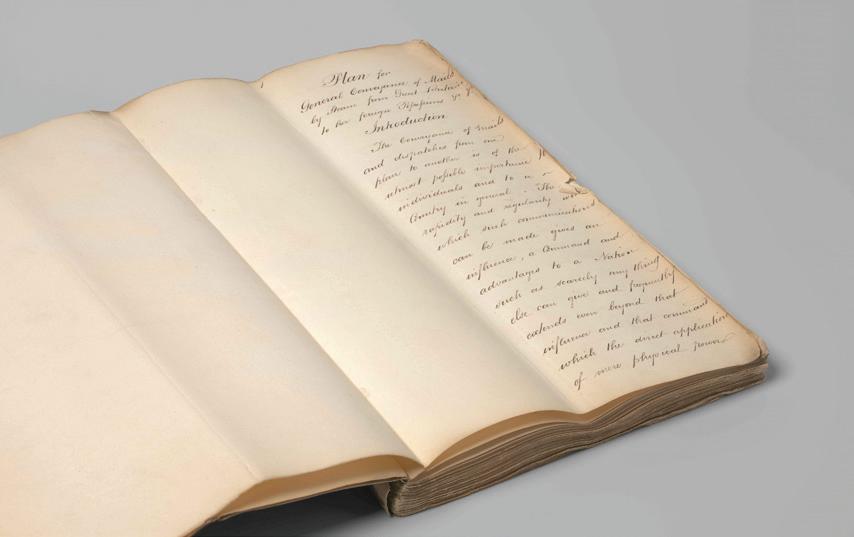 Plan for
General Conveyance of Mails
by Steam from Great Britain
to her foreign Possessions &c &c
Introduction
The Conveyance of Mails
and dispatches from one
place to another is of the
utmost possible importance to
individuals and to a
Country in general. The
rapidity and regularity with
which such communications
can be made gives an
influence, a Command and
advantages to a Nation
such as scarcely any thing
else can give and frequently
extends even beyond that
influence and that command
which the direct application
of mere physical power